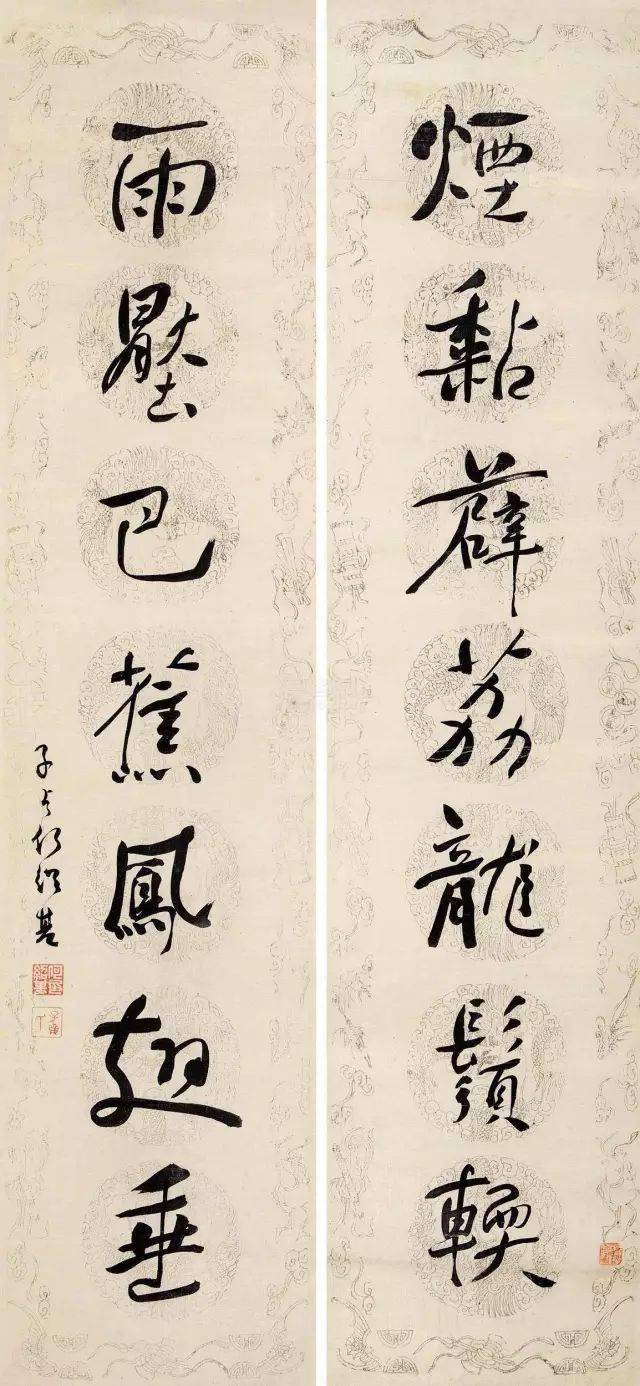 煙黏薜荔龍鬚輭
雨壓芭蕉鳳翅垂
子貞何紹基